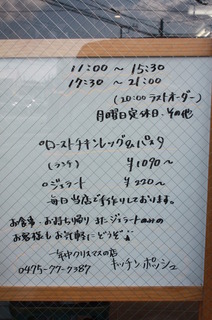 11:00 〜 15:30
17:30 〜 21:00
(20:00 ラストオーダー)
月曜日定休日、その他
○ローストチキンレッグ&パスタ
(ランチ) ¥1090〜
○ジェラート ¥220〜
毎日当店で手作りしております。
お食事、お持ち帰り またジェラートのみの
お客様もお気軽にどうぞ
一年中クリスマスの店
0475-77-7387 キッチンポッシュ